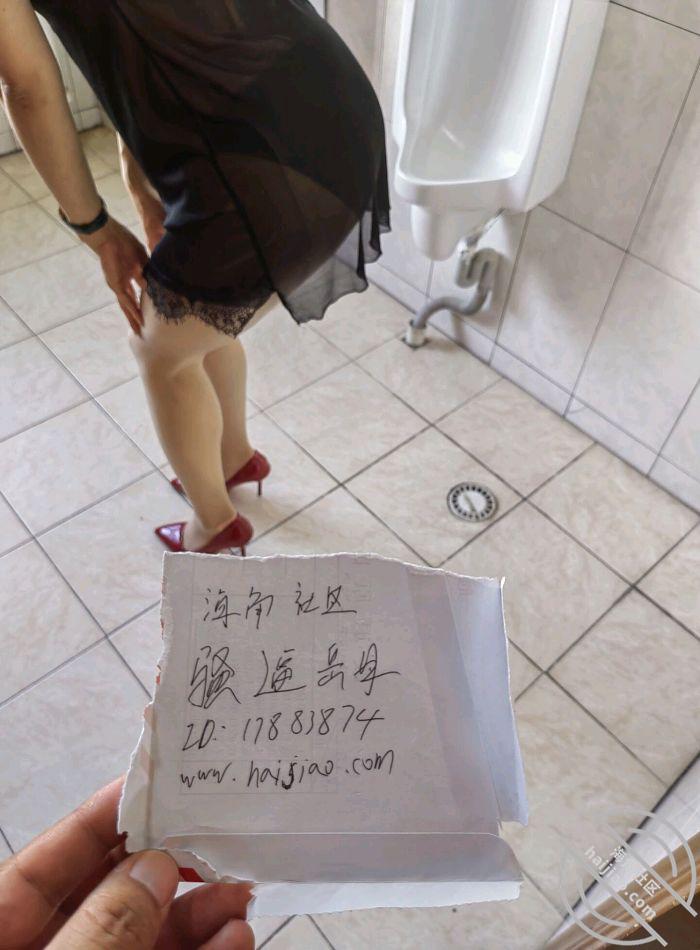 海角社区
骚逼岳母
ID: 17883874
www.haijiao.com
海角社区
haijiao.com